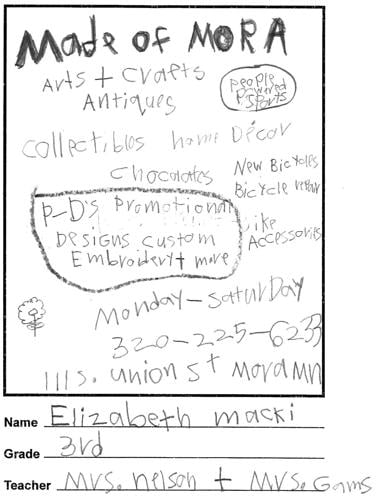 Made of MORA
Arts + Crafts
Antiques
People
Powered
Sports
Collectibles home Décor
Chocolates
New Bicycles
Bicycle repair
Bike
Accessories
P-D's Promotional
Designs custom
Embroidery + more
Monday - Saturday
320-225-6233
111 S. Union St Mora MN
Name Elizabeth macki
Grade 3rd
Teacher Mrs. nelson + Mrs. Gams